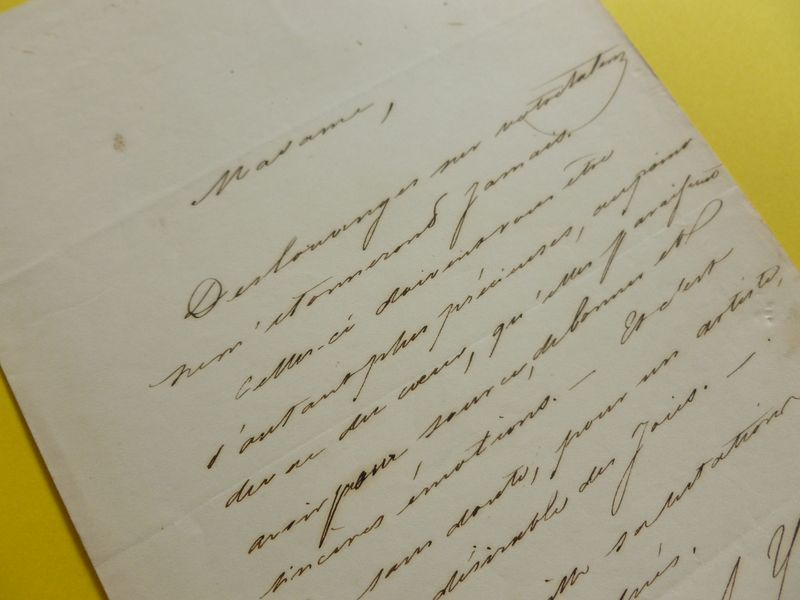 Madame,
Des louanges sur votre talent
ne m'étonneront jamais.
Celles-ci doivent vous être
d'autant plus précieuses, au point
de vue du cœur, qu'elles paraissent
avoir pour source, de bonnes et
sincères émotions. — Et c'est
sans doute, pour un artiste,
désirable des Joies. —
mille salutations